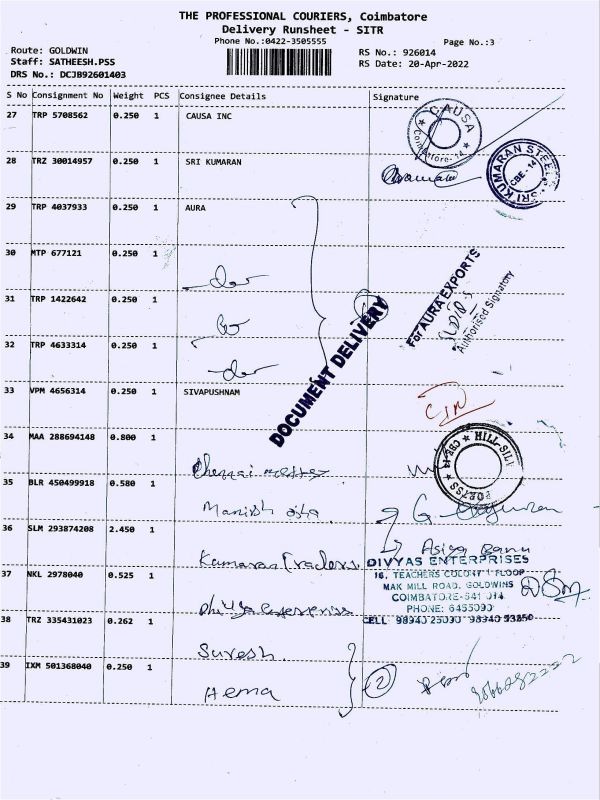 THE PROFESSIONAL COURIERS, Coimbatore
Delivery Runsheet - SITR
Phone No.:0422-3505555
Page No.:3
Route: GOLDWIN
Staff: SATHEESH.PSS
DRS No.: DCJB92601403
RS No.: 926014
RS Date: 20-Apr-2022
S No Consignment No Weight PCS Consignee Details Signature
27 TRP 5708562 0.250 1 CAUSA INC
CAUSA
Coimbatore-14
28 TRZ 30014957 0.250 1 SRI KUMARAN
SRI KUMARAN STEEL
CBE-14
29 TRP 4037933 0.250 1 AURA
30 MTP 677121 0.250 1
31 TRP 1422642 0.250 1
32 TRP 4633314 0.250 1
For AURA EXPORTS
Authorised Signatory
DOCUMENT DELIVERY
33 VPM 4656314 0.250 1 SIVAPUSHNAM
34 MAA 288694148 0.800 1
Chennai
HILL-SILF
35 BLR 450499918 0.580 1
Manish
36 SLM 293874208 2.450 1
Kumaran Traders
Asiya Banu
37 NKL 2978040 0.525 1
Dhivya enterpriss
DIVYAS ENTERPRISES
16, TEACHERS COLONY I FLOOR
MAK MILL ROAD, GOLDWINS
COIMBATORE-641 014
PHONE: 6455090
38 TRZ 335431023 0.262 1
Suresh.
39 IXM 501368040 0.250 1
Hema
2